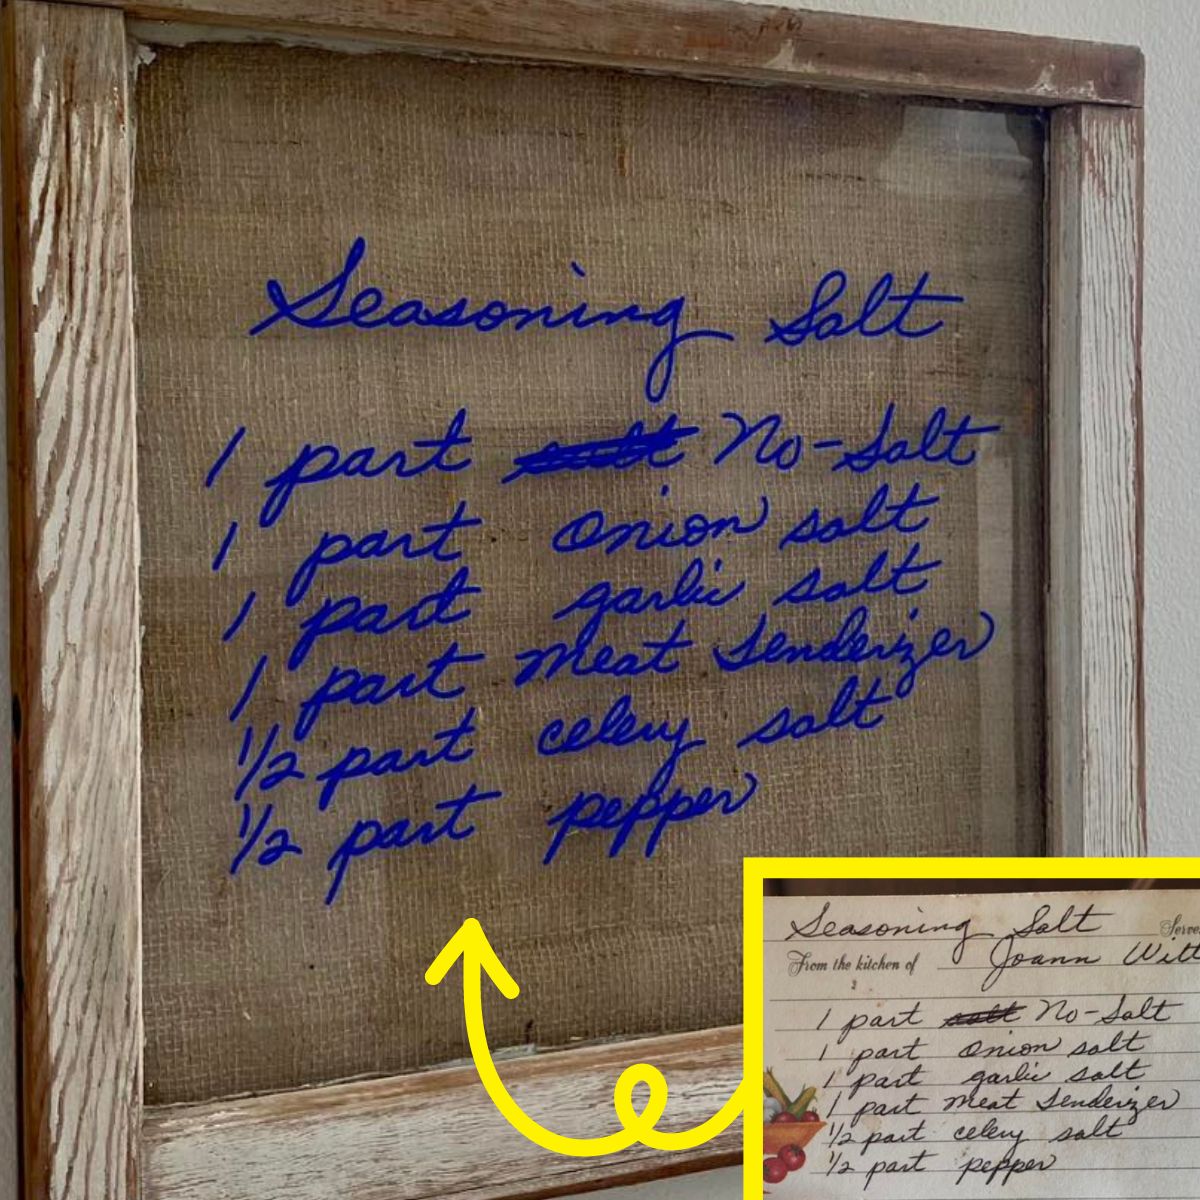 Seasoning Salt
1 part salt No-Salt
1 part onion salt
1 part garlic salt
1 part meat tenderizer
1/2 part celery salt
1/2 part pepper
Seasoning Salt
From the kitchen of Joann
1 part salt No-Salt
1 part onion salt
1 part garlic salt
1 part meat tenderizer
1/2 part celery salt
1/2 part pepper